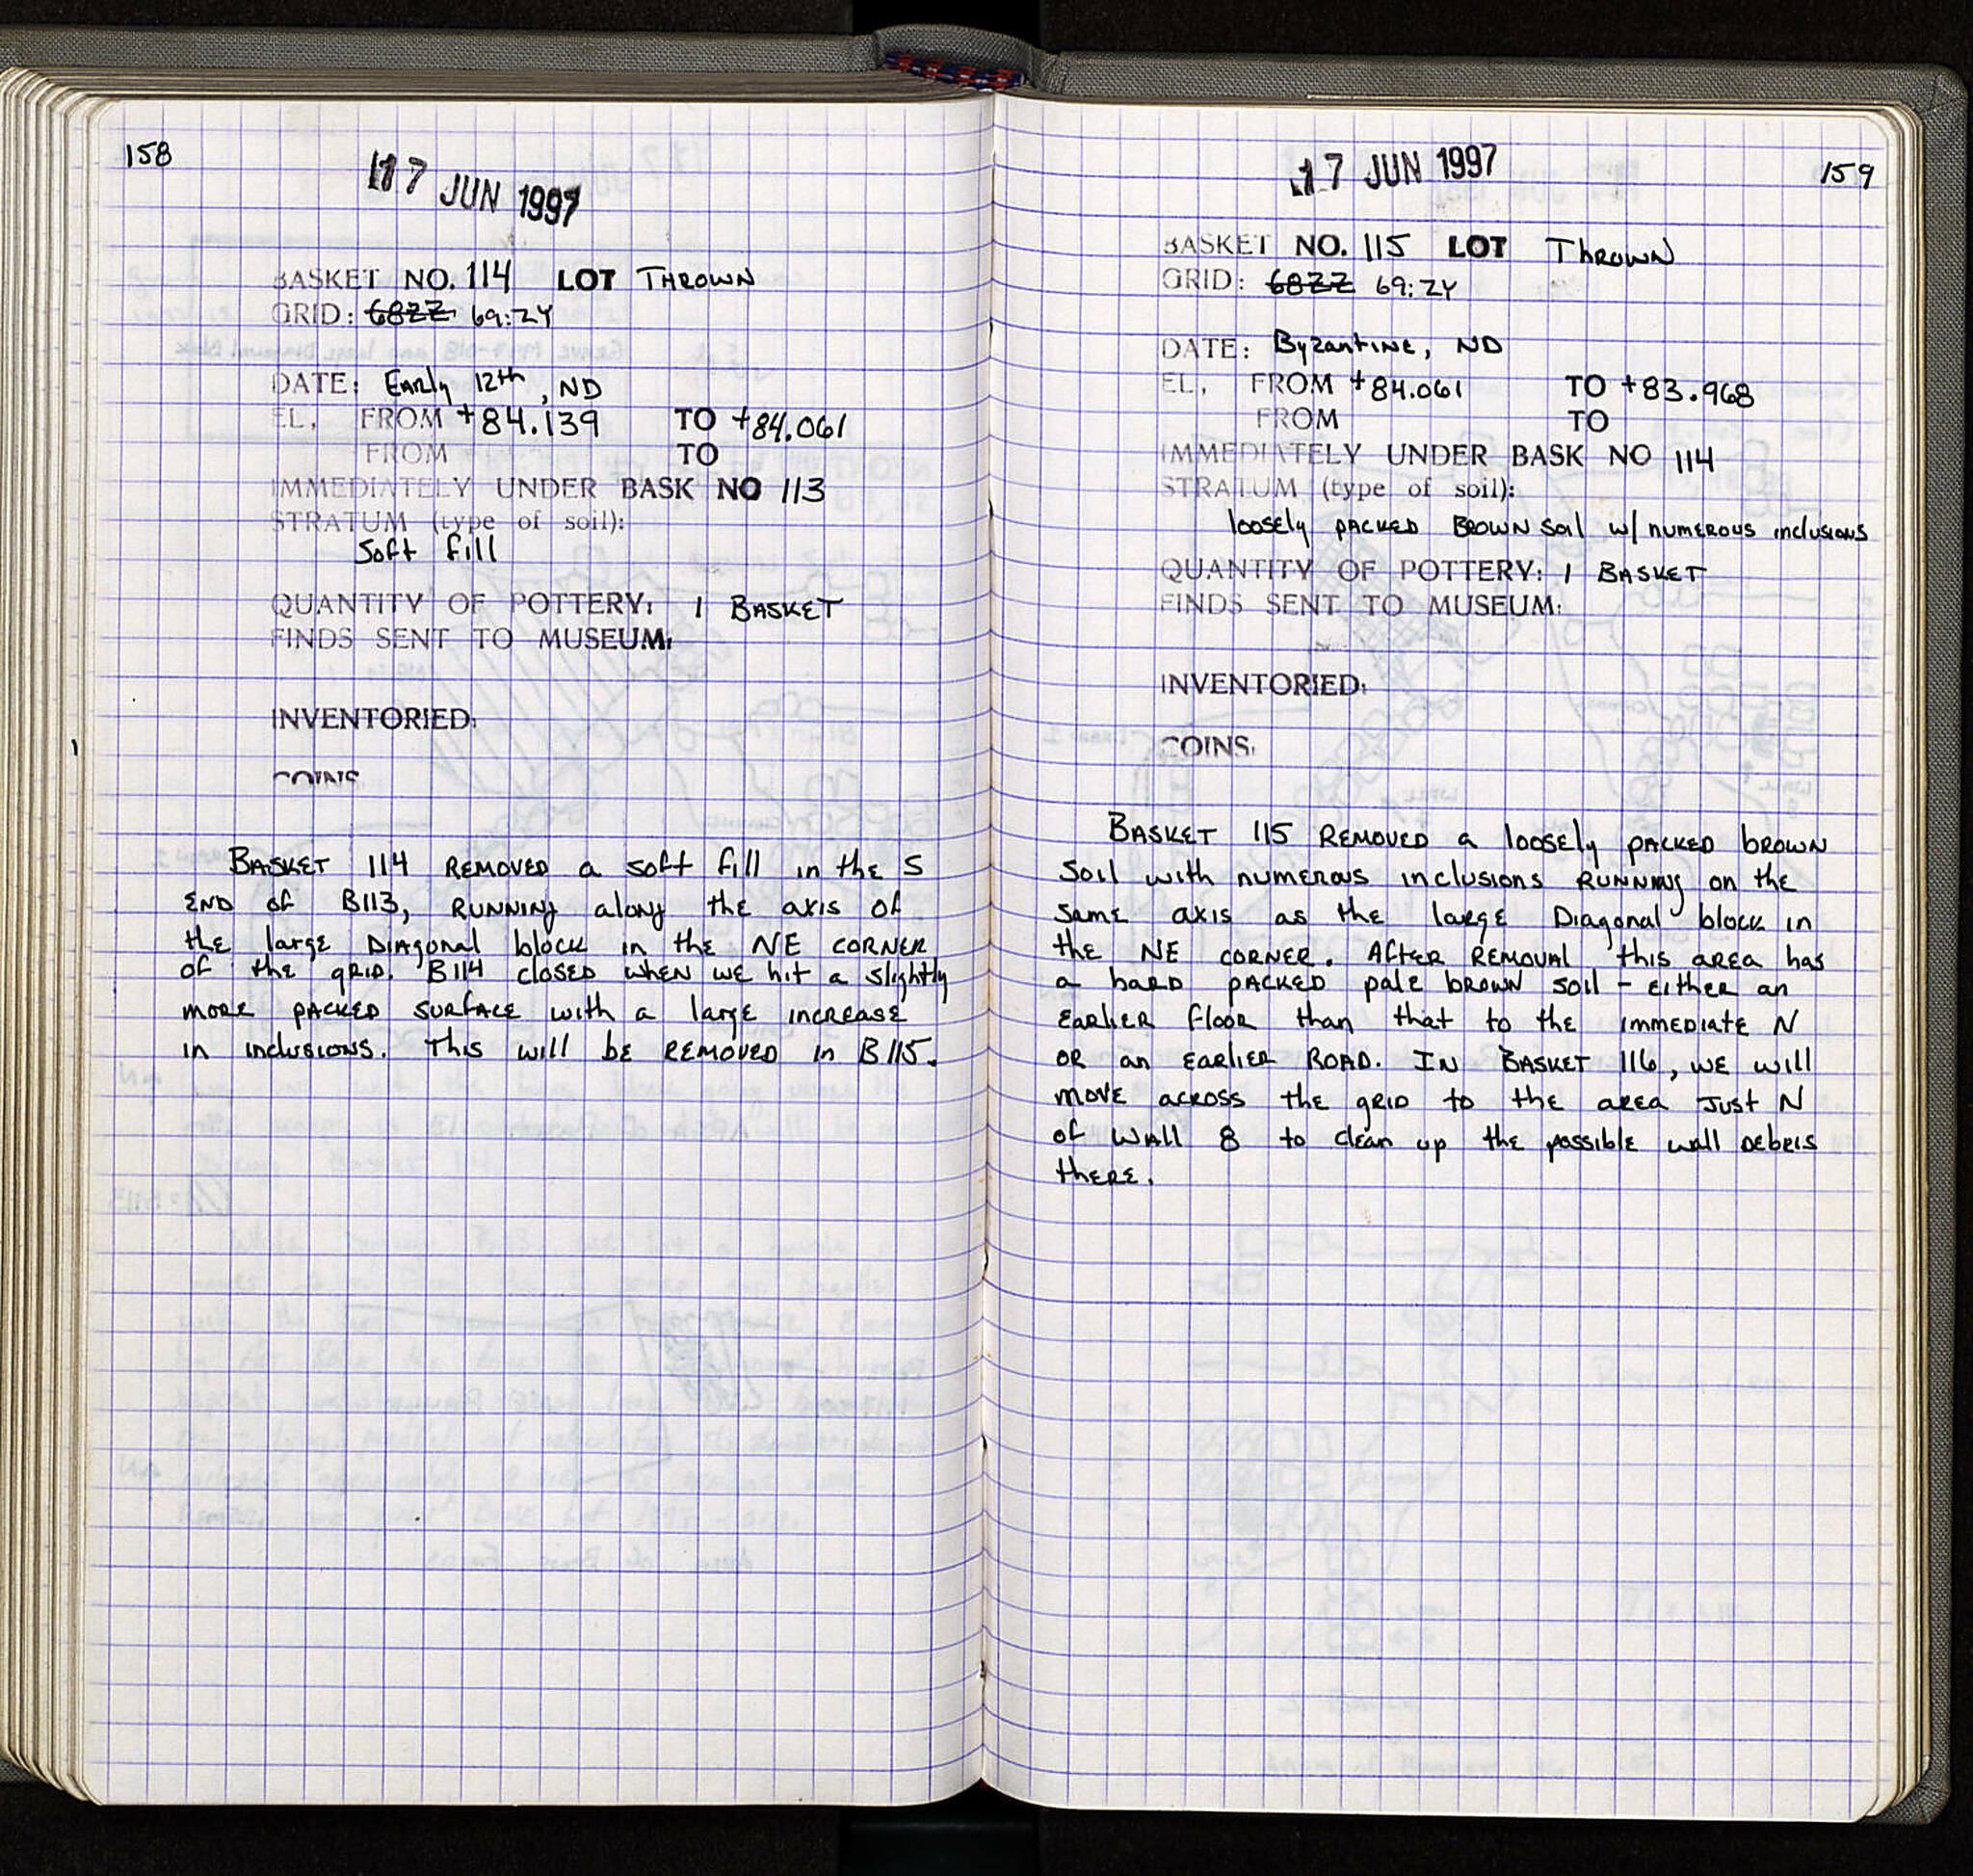 158
17 JUN 1997
BASKET NO. 114 LOT THROWN
GRID: 68ZZ 69:ZY
DATE: Early 12th, ND
EL. FROM +84.139 TO +84.061
FROM TO
IMMEDIATELY UNDER BASK NO 113
STRATUM (type of soil):
Soft fill
QUANTITY OF POTTERY: 1 BASKET
FINDS SENT TO MUSEUM:
INVENTORIED:
COINS
BASKET 114 REMOVED a soft fill in the S
END of B113, RUNNING along the axis of
the large DIAGONAL block in the NE CORNER
of the GRID. B114 CLOSED WHEN WE hit a slightly
MORE PACKED SURFACE with a large INCREASE
IN INCLUSIONS. This will be REMOVED in B115.
17 JUN 1997
159
BASKET NO. 115 LOT THROWN
GRID: 68ZZ 69:ZY
DATE: Byzantine, ND
EL. FROM +84.061 TO +83.968
FROM TO
IMMEDIATELY UNDER BASK NO 114
STRATUM (type of soil):
loosely PACKED BROWN soil w/ NUMEROUS inclusions
QUANTITY OF POTTERY: 1 BASKET
FINDS SENT TO MUSEUM:
INVENTORIED:
COINS:
BASKET 115 REMOVED a loosely PACKED BROWN
Soil with numerous inclusions RUNNING on the
SAME axis as the large Diagonal block in
the NE CORNER. AFTER REMOVAL this area has
a hard PACKED pale brown soil - Either an
EARLIER FLOOR than that to the IMMEDIATE N
OR an EARLIER ROAD. IN BASKET 116, WE will
MOVE ACROSS the GRID to the area Just N
of WALL 8 to clean up the possible wall DEBRIS
there.